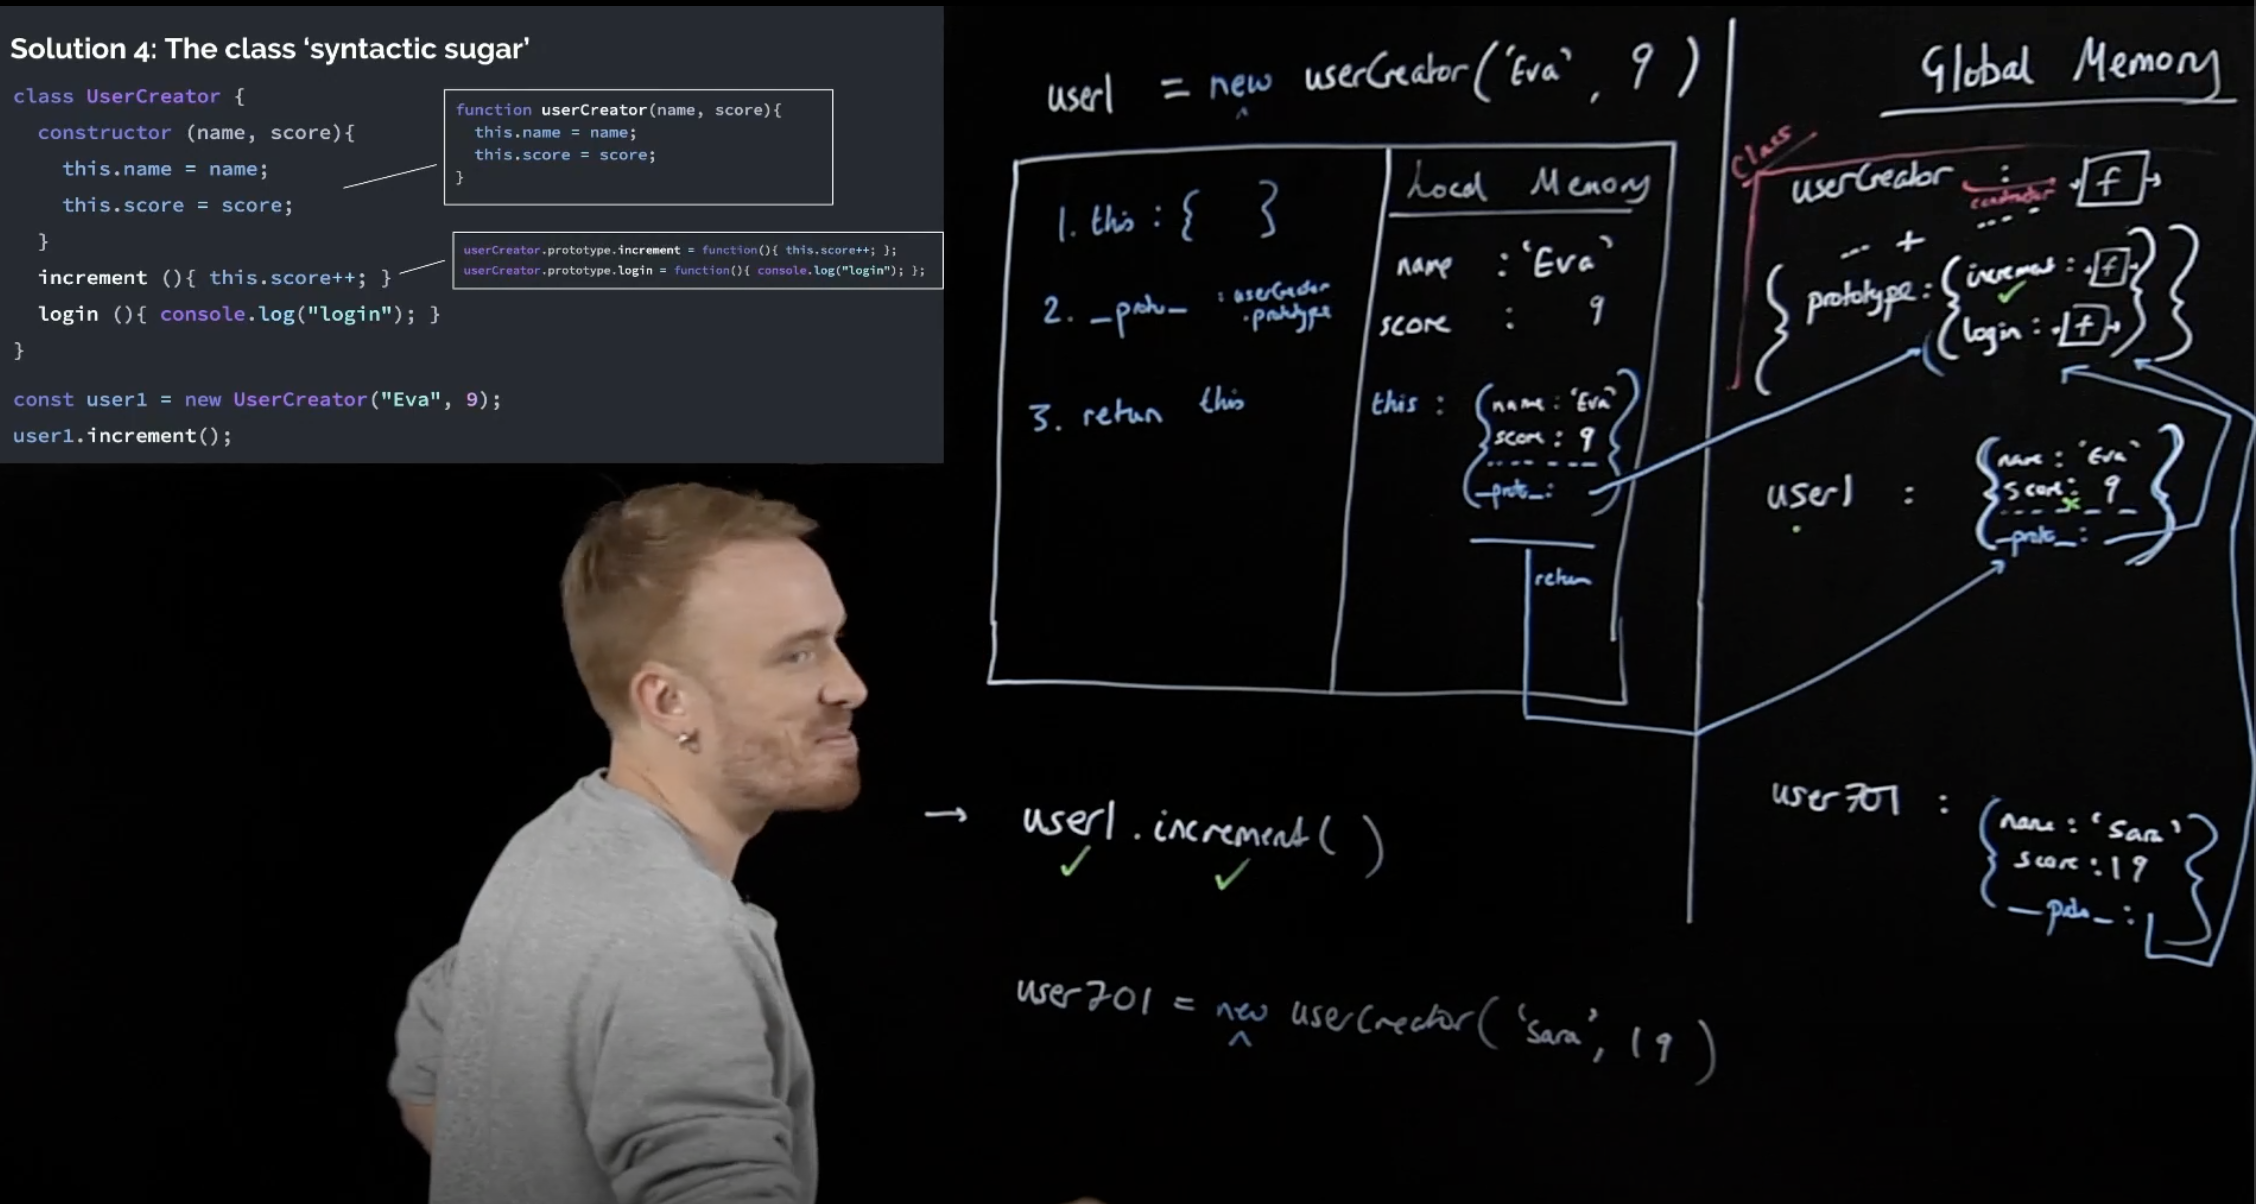 Solution 4: The class ‘syntactic sugar’
class UserCreator {
constructor (name, score){
this.name = name;
this.score = score;
}
increment (){ this.score++; }
login (){ console.log("login"); }
}
const user1 = new UserCreator("Eva", 9);
user1.increment();
function userCreator(name, score){
this.name = name;
this.score = score;
}
userCreator.prototype.increment = function(){ this.score++; };
userCreator.prototype.login = function(){ console.log("login"); };
user1 = new userCreator('Eva', 9)
^
1. this : { }
2. __proto__ : userCreator
.prototype
3. return this
Local Memory
name : 'Eva'
score : 9
this : { name : 'Eva'
score : 9
__proto__ : }
return
→ user1.increment()
✓ ✓
user701 = new userCreator('Sara', 19)
^
Global Memory
Class
userCreator : f
constructor
+
{ prototype : { increment : f
✓
login : f } }
user1 : { name : 'Eva'
score : 9
x
__proto__ : }
user701 : { name : 'Sara'
score : 19
__proto__ : }